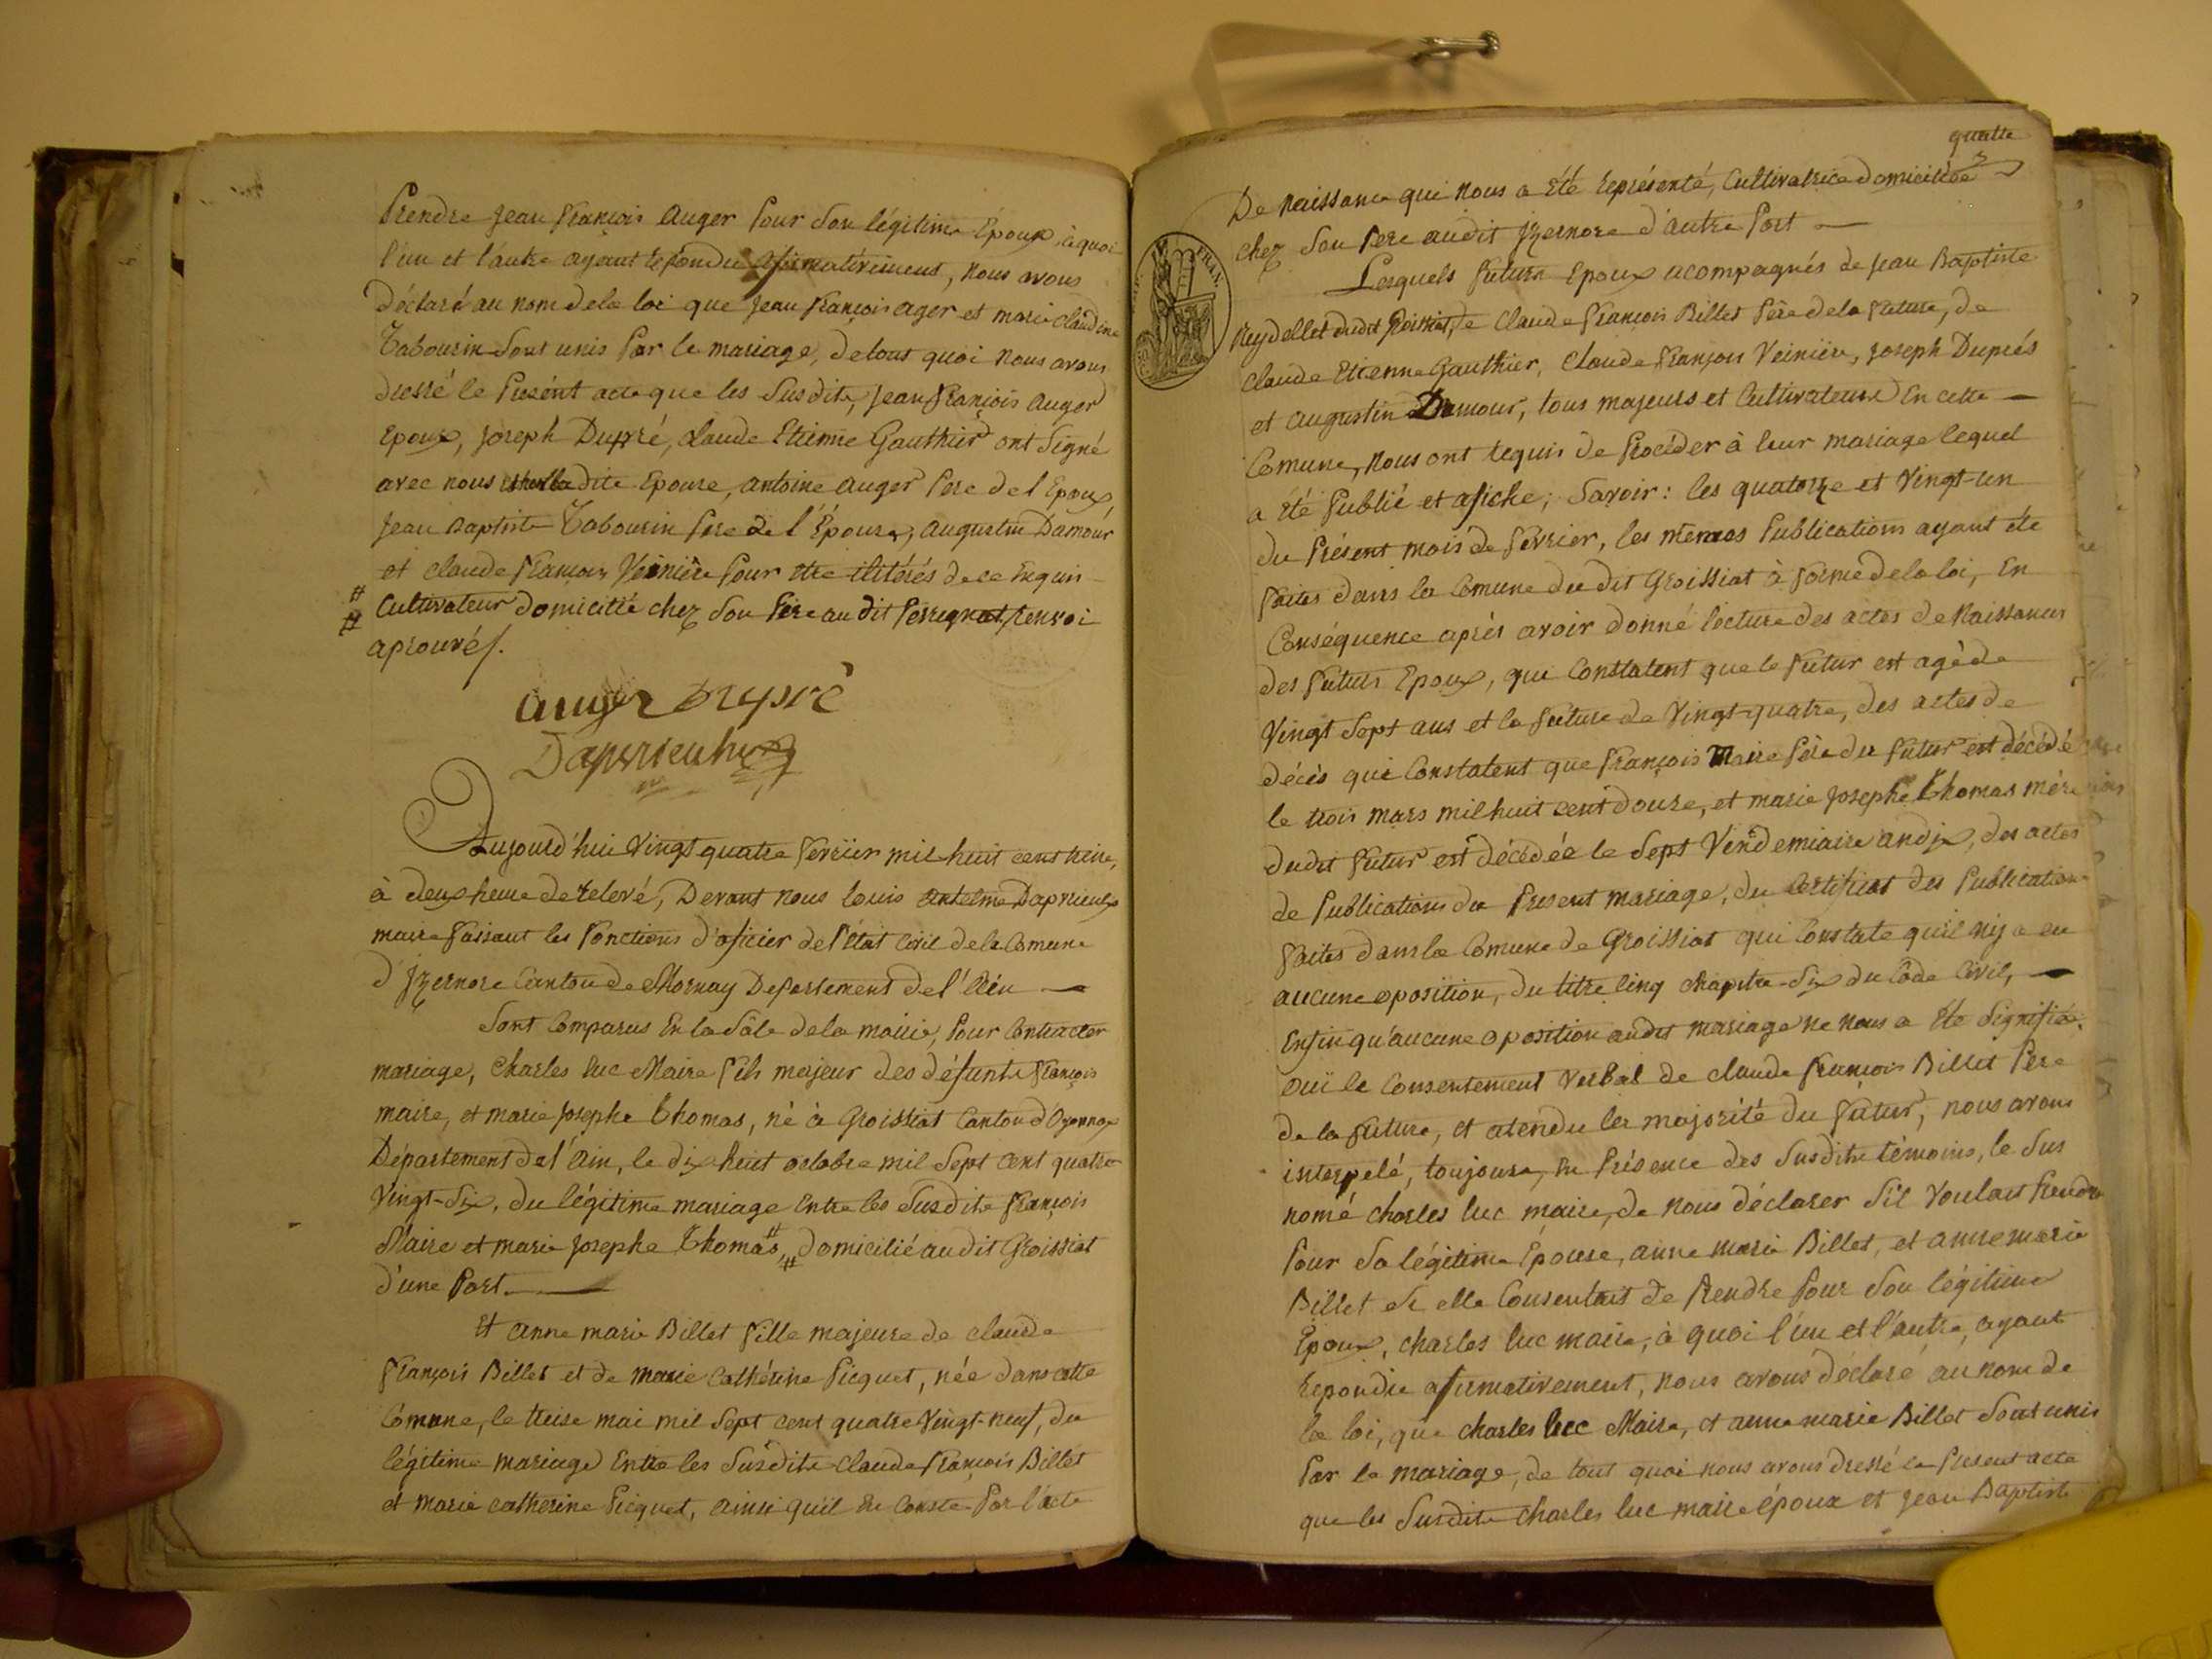 Prendre jean françois auger pour son légitime Epoux, à quoi
l'un et l'autre ayant repondu afirmativement, nous avons
déclaré au nom de la loi que jean françois ager et marie claudine
Tabourin sont unis par le mariage, de tout quoi nous avons
dressé le présent acte que les susdits, jean françois auger
Epoux, joseph Dupré, claude Etienne Gauthier ont signé
avec nous dite Epouse, antoine auger père de l'Epoux
jean Baptiste Tabourin père de l'Épouse, augustin Damour
et claude françois Veiniére pour etre ilitérés de ce enquis
# cultivateur domicilié chez son père au dit renvoi
# aprouvés.
auger Dupré
Daprieulx
Aujourd'hui vingt quatre fevrier mil huit cent treise,
à deux heure de relevé, Devant nous louis antelme Daprieulx
maire faisant les fonctions d'oficier de l'état civil de la Comune
d'jzernore Canton de Mornay Departement de l'Ain
Sont Comparus En la sâle de la mairie, pour Contracter
mariage, charles luc Maire fils majeur des défunts françois
maire, et marie josephe thomas, né à Groissiat Canton d'Oyonnax
Département de l'ain, le dix huit octobre mil sept cent quatre
Vingt-six, du légitime mariage Entre les susdits françois
Maire et marie josephe thomas,# domicilié audit Groissiat
d'une part.
Et anne marie Billet fille majeure de claude
françois Billet et de marie Cathérine Picquet, née dans cette
Comune, le treise mai mil sept cent quatre vingt-neuf, du
légitime mariage Entre les susdits claude françois Billet
et marie catherine Picquet, ainsi qu'il en conste par l'acte
quatre
De naissance qui nous a été représenté, Cultivatrice domiciliée
chez son père audit jzernore d'autre part
Lesquels futurs Epoux acompagnés de jean Baptiste
Ruydellet dudit Groissiat, de claude françois Billet père de la future, de
claude Etienne Gauthier, claude françois Veiniére, joseph Duprés
et augustin Damour, tous majeurs et Cultivateurs En cette
Comune, nous ont requis de procéder à leur mariage lequel
a été publié et afiché; savoir: les quatorze et vingt-un
du présent mois de février, les mêmes publications ayant été
faites dans la Comune du dit Groissiat à forme de la loi, En
Conséquence après avoir donné lecture des actes de naissances
des futurs Epoux, qui Constatent que le futur est agé de
vingt sept ans et la future de vingt-quatre, des actes de
décès qui Constatent que françois Maire père du futur est décédé
le trois mars mil huit cent douze, et marie josephe thomas mére
dudit futur est décédée le sept vendemiaire an dix, des actes
de publications du present mariage, du certificat des publications
faites dans la Comune de Groissiat qui Constate qu'il n'y a eu
aucune oposition, du titre cinq chapitre six du Code Civil,
Enfin qu'aucune oposition audit mariage ne nous a été signifiée.
ouï le Consentement verbal de claude françois Billet père
de la future, et atendu la majorité du futur, nous avons
interpelé, toujours, en présence des susdits témoins, le sus
nomé charles luc maire, de nous déclarer s'il voulait prendre
pour sa légitime Épouse, anne marie Billet, et anne marie
Billet si elle Consentait de prendre pour son légitime
Epoux, charles luc maire, à quoi l'un et l'autre, ayant
repondu afirmativement, nous avons déclaré au nom de
la loi, que charles luc Maire, et anne marie Billet sont unis
par le mariage, de tout quoi nous avons dressé le present acte
que les susdits charles luc maire époux et jean Baptiste